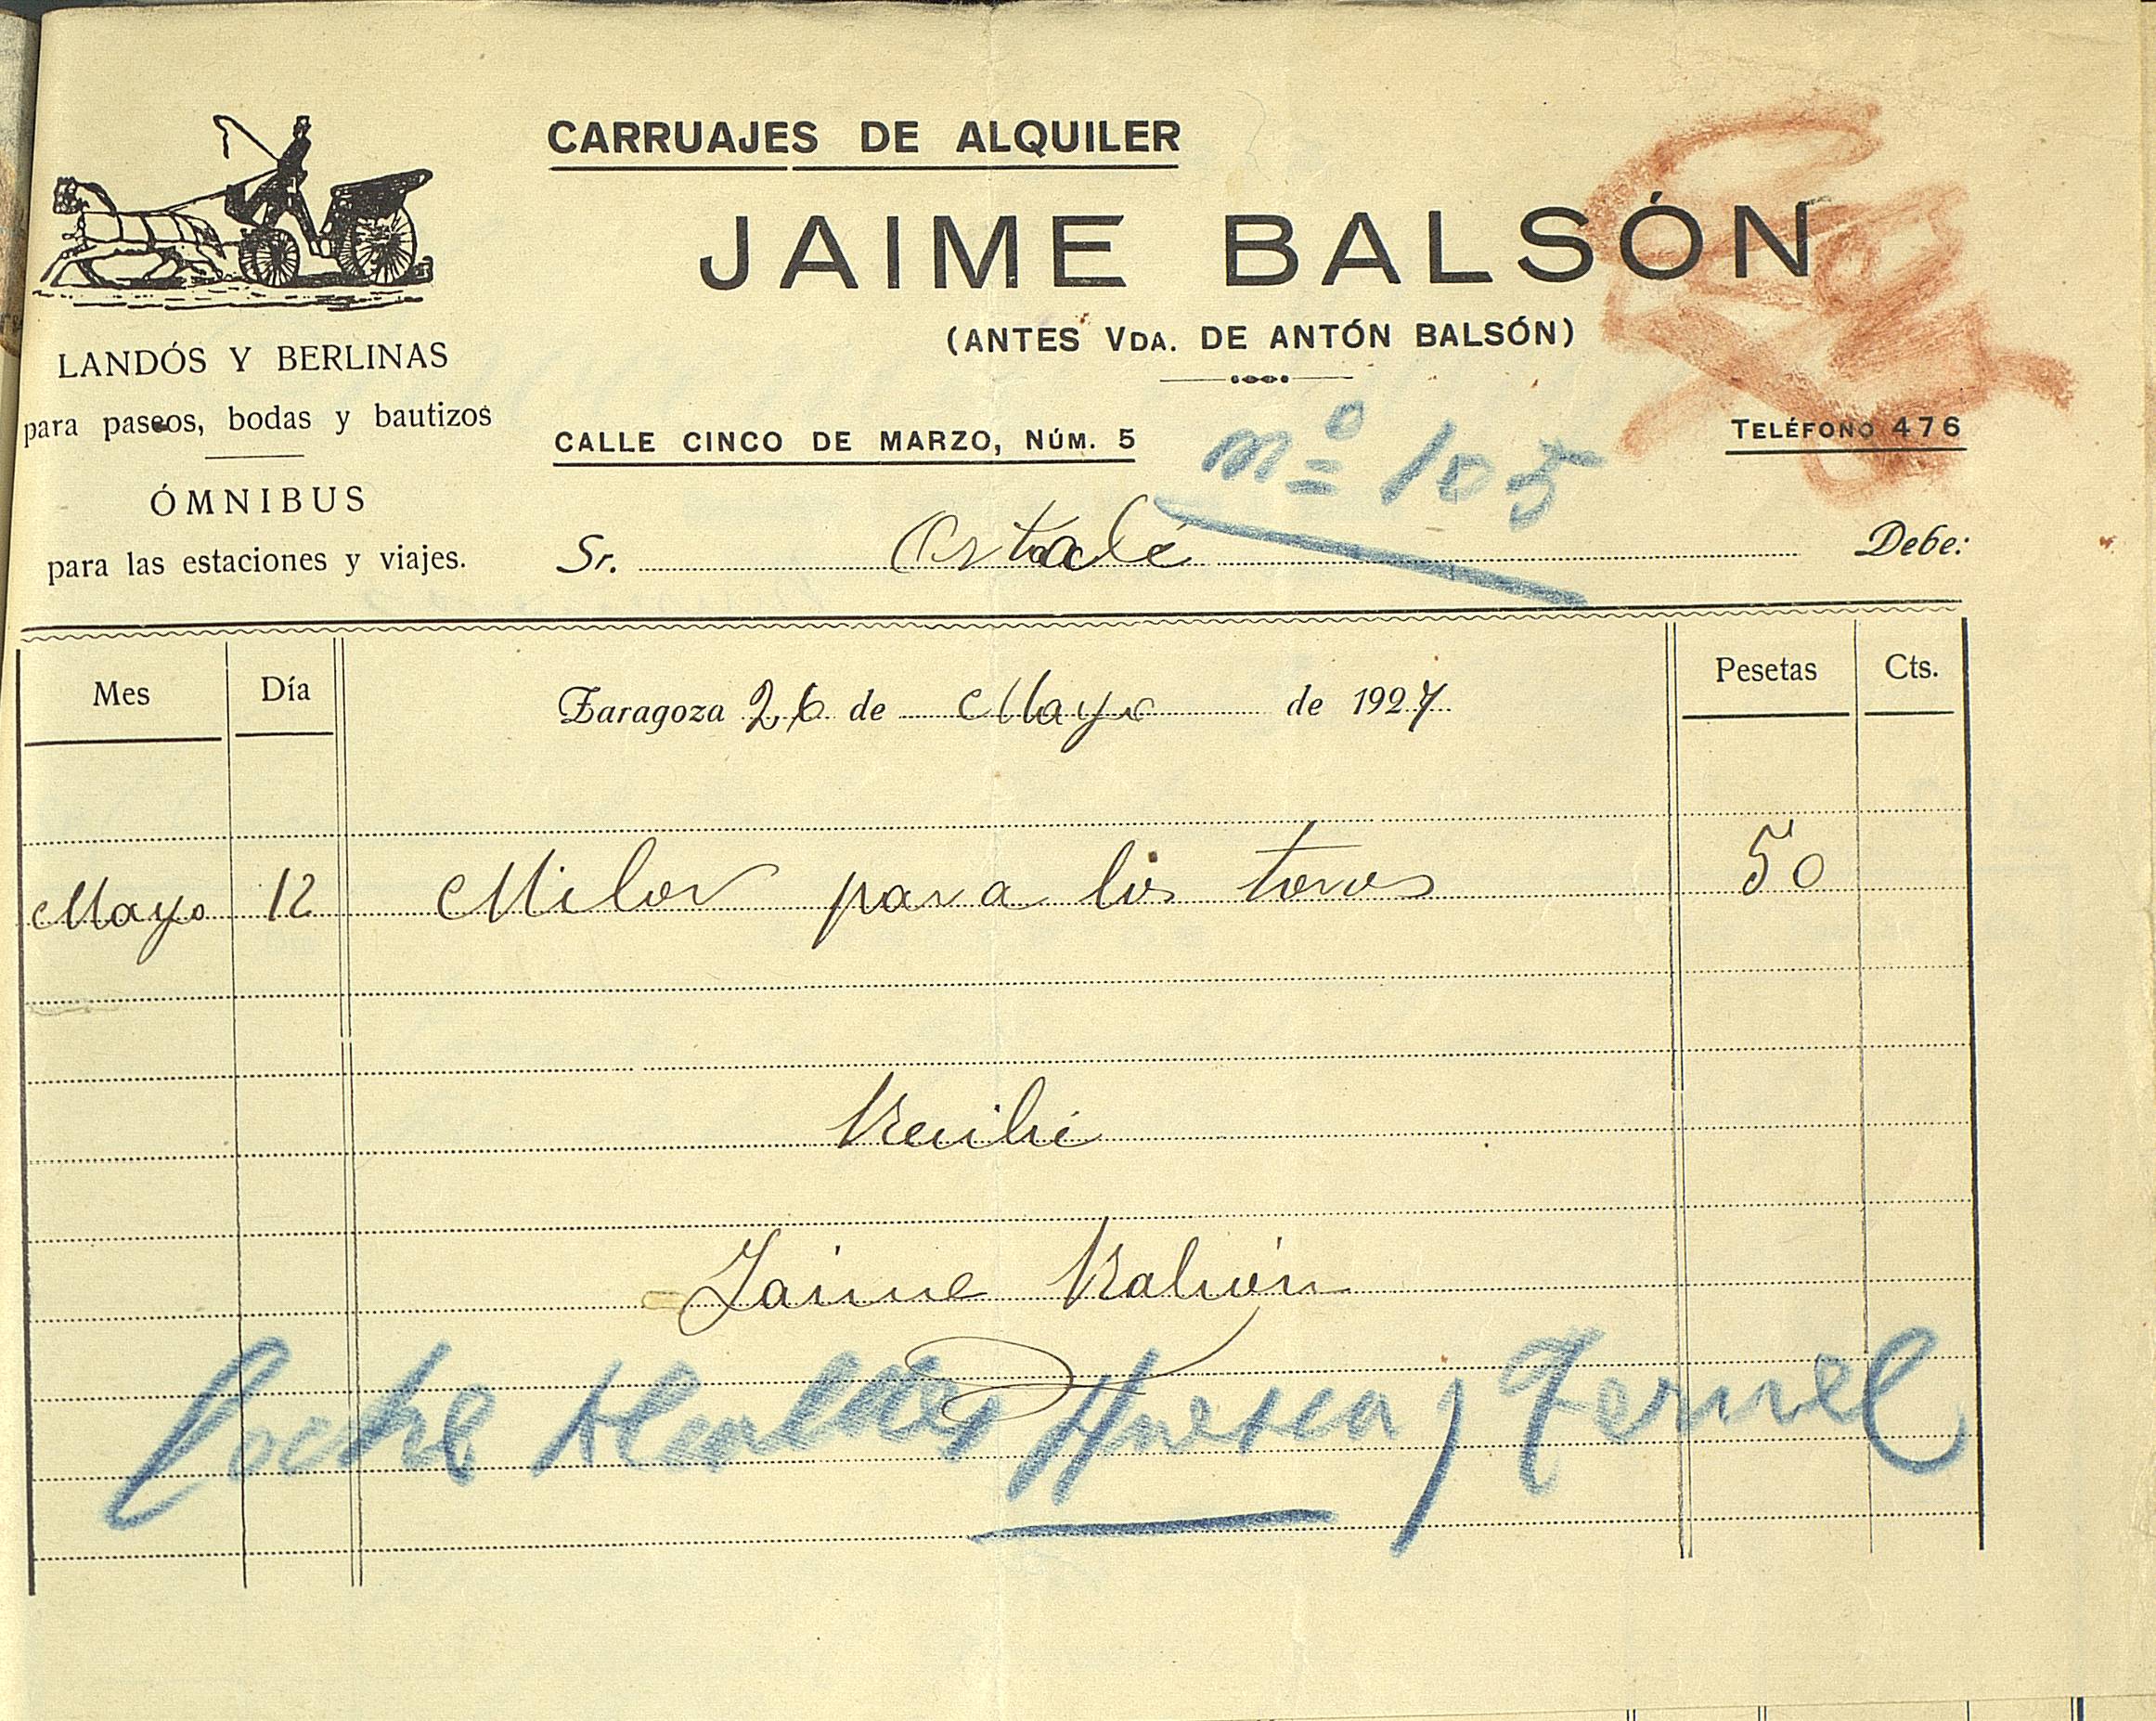 CARRUAJES DE ALQUILER
JAIME BALSÓN
(ANTES VDA. DE ANTÓN BALSÓN)
LANDÓS Y BERLINAS
para paseos, bodas y bautizos
ÓMNIBUS
para las estaciones y viajes.
CALLE CINCO DE MARZO, NÚM. 5
TELÉFONO 476
nº 105
Sr. Ostalé Debe:
Mes Día Zaragoza 26 de Mayo de 1927 Pesetas Cts.
Mayo 12 Milor para los toros 50
Recibí
Jaime Balsón
Coche Alcaldes Huesca y Teruel